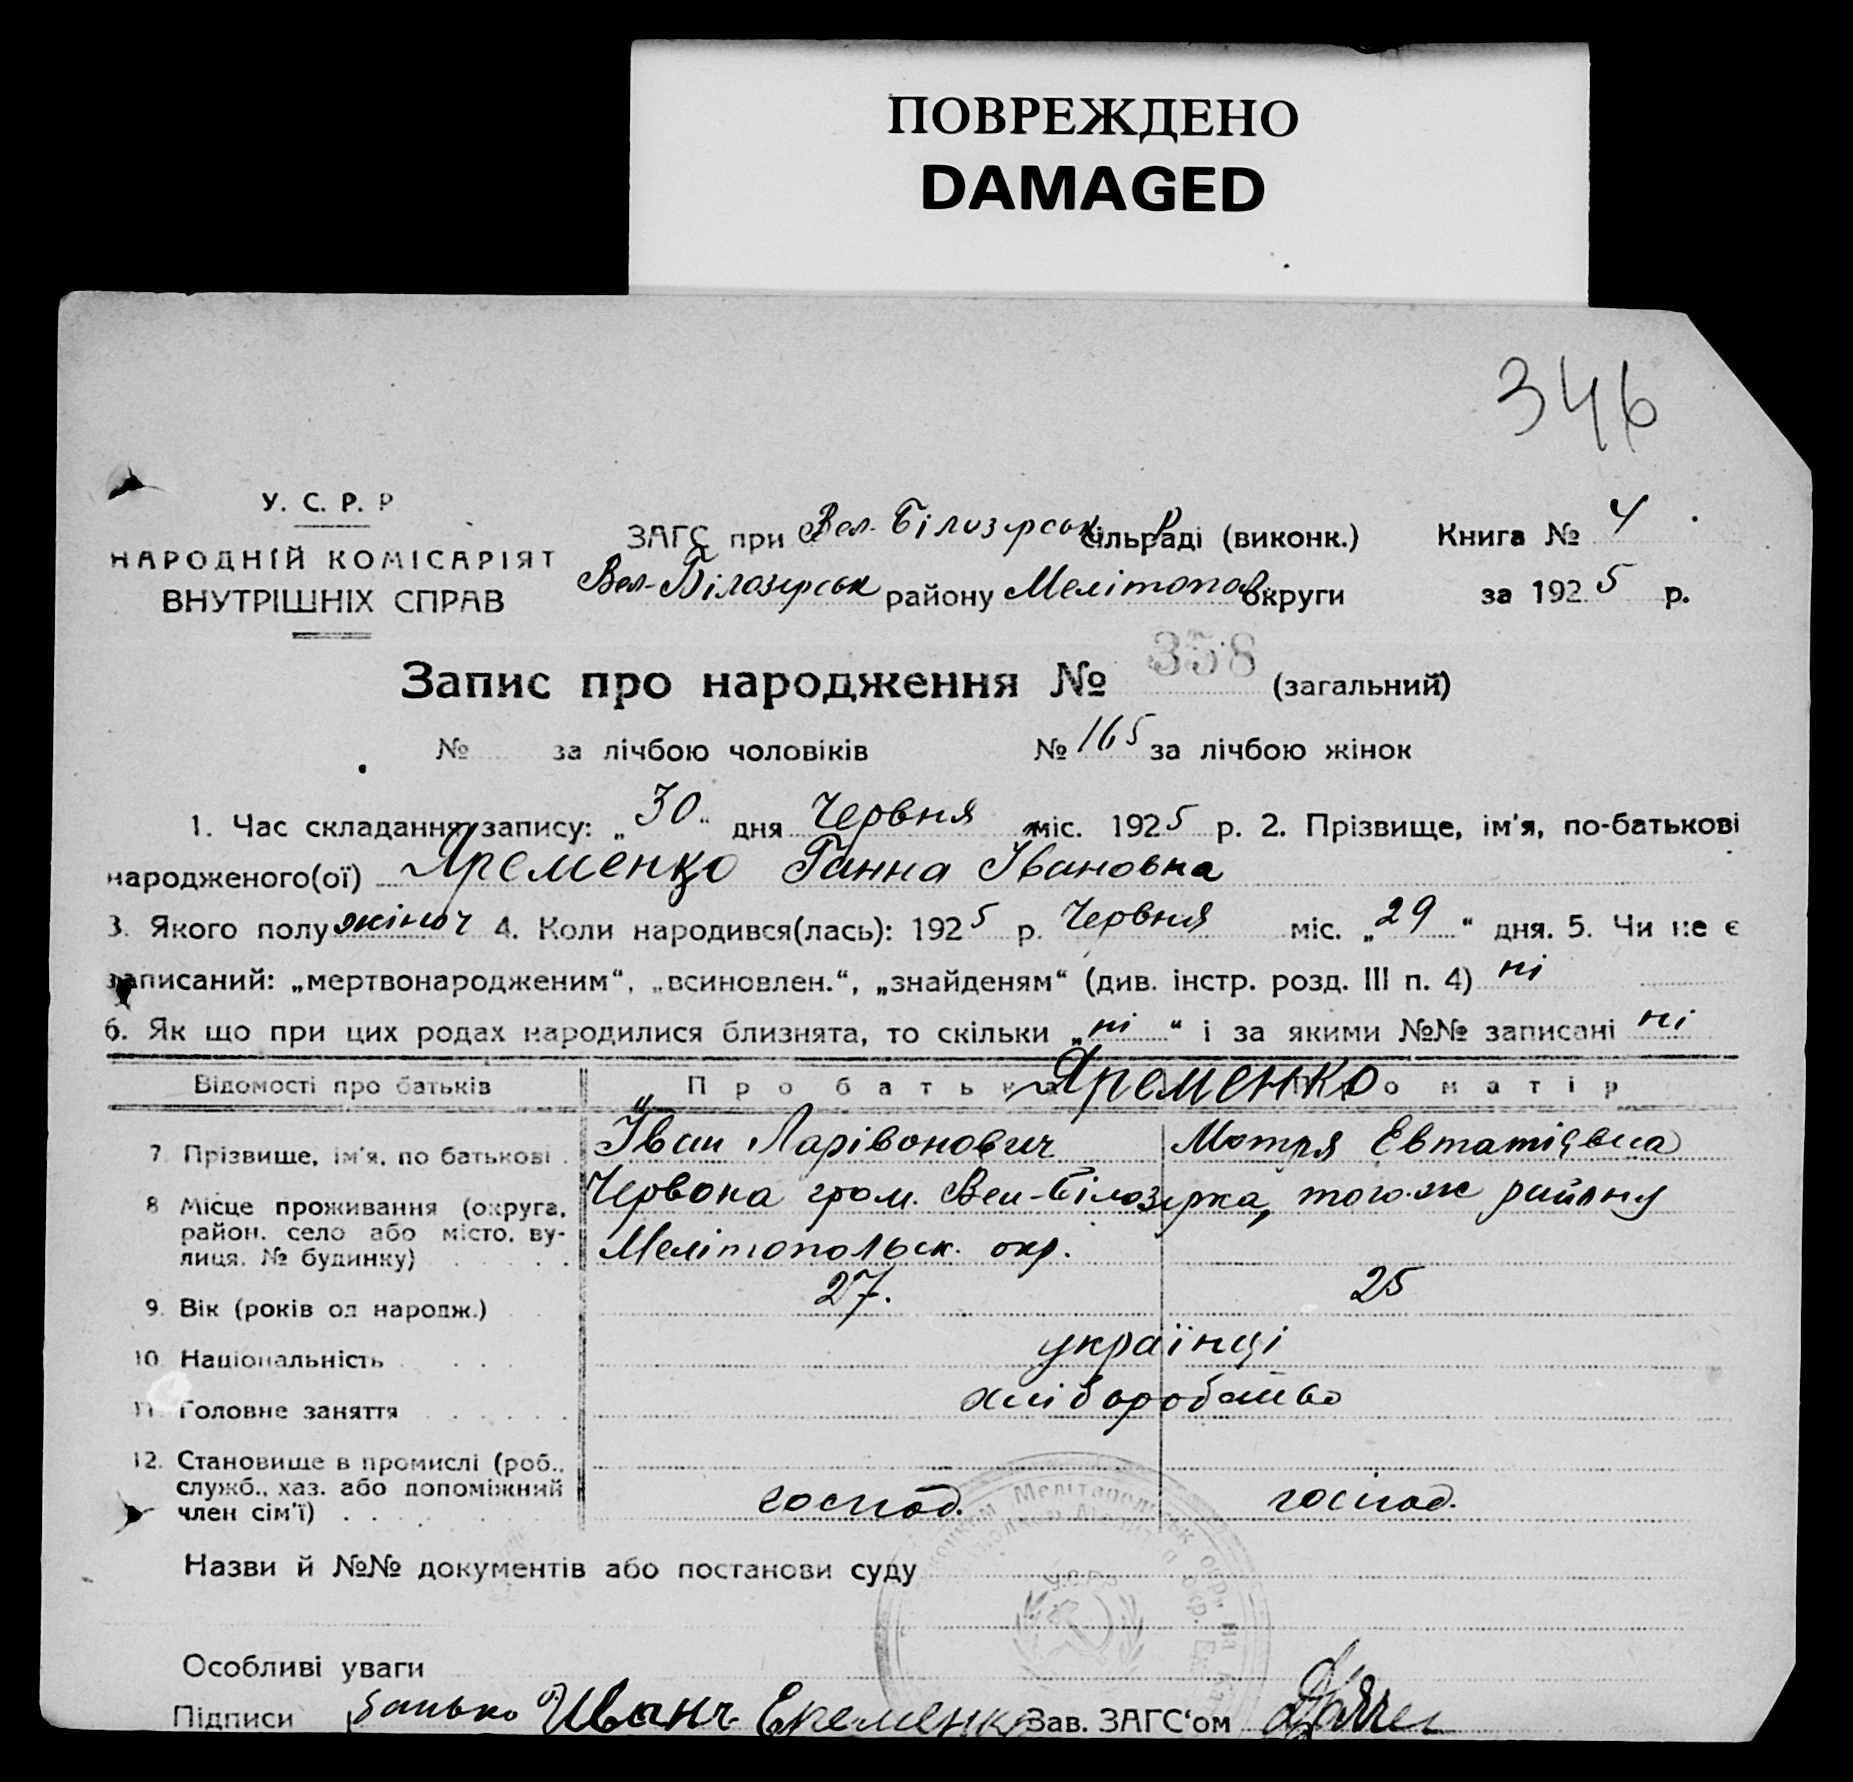 ПОВРЕЖДЕНО
DAMAGED
346
У. С. Р. Р
НАРОДНІЙ КОМІСАРІЯТ
ВНУТРІШНІХ СПРАВ
ЗАГС при Вел. Білозирськ сільраді (виконк.) Книга № 4
Вел-Білозирськ району Мелітопол. округи за 1925 р.
Запис про народження № 358 (загальний)
№ за лічбою чоловіків № 165 за лічбою жінок
1. Час складання запису: „30" дня Червня міс. 1925 р. 2. Прізвище, ім'я, по-батькові
народженого(ої) Яременко Ганна Івановна
3. Якого полу жіноч 4. Коли народився(лась): 1925 р. Червня міс. „29" дня. 5. Чи не є
записаний: „мертвонародженим", „всиновлен.", „знайденям" (див. інстр. розд. III п. 4) ні
6. Як що при цих родах народилися близнята, то скільки „ні" і за якими №№ записані ні
Відомості про батьків Про батька Яременко Про матір
7 Прізвище, ім'я, по батькові Іван Ларівонович Мотря
8 Місце проживання (округа, район, село або місто, вулиця, № будинку) Червона гром. Вел-Білозирка, того-ж району
Мелітопольск. окр.
9. Вік (років од народж.) 27. 25
10 Національність українці
11. Головне заняття хліборобство
12. Становище в промислі (роб., служб., хаз. або допоміжний член сім'ї) господ. господ.
Назви й №№ документів або постанови суду
Особливі уваги
Підписи батько Иванъ Еременко Зав. ЗАГС'ом